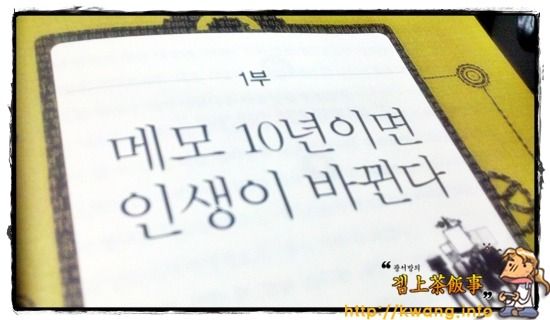 1부
메모 10년이면
인생이 바뀐다
“광서방의
컴上茶飯事”
http://kwang.info